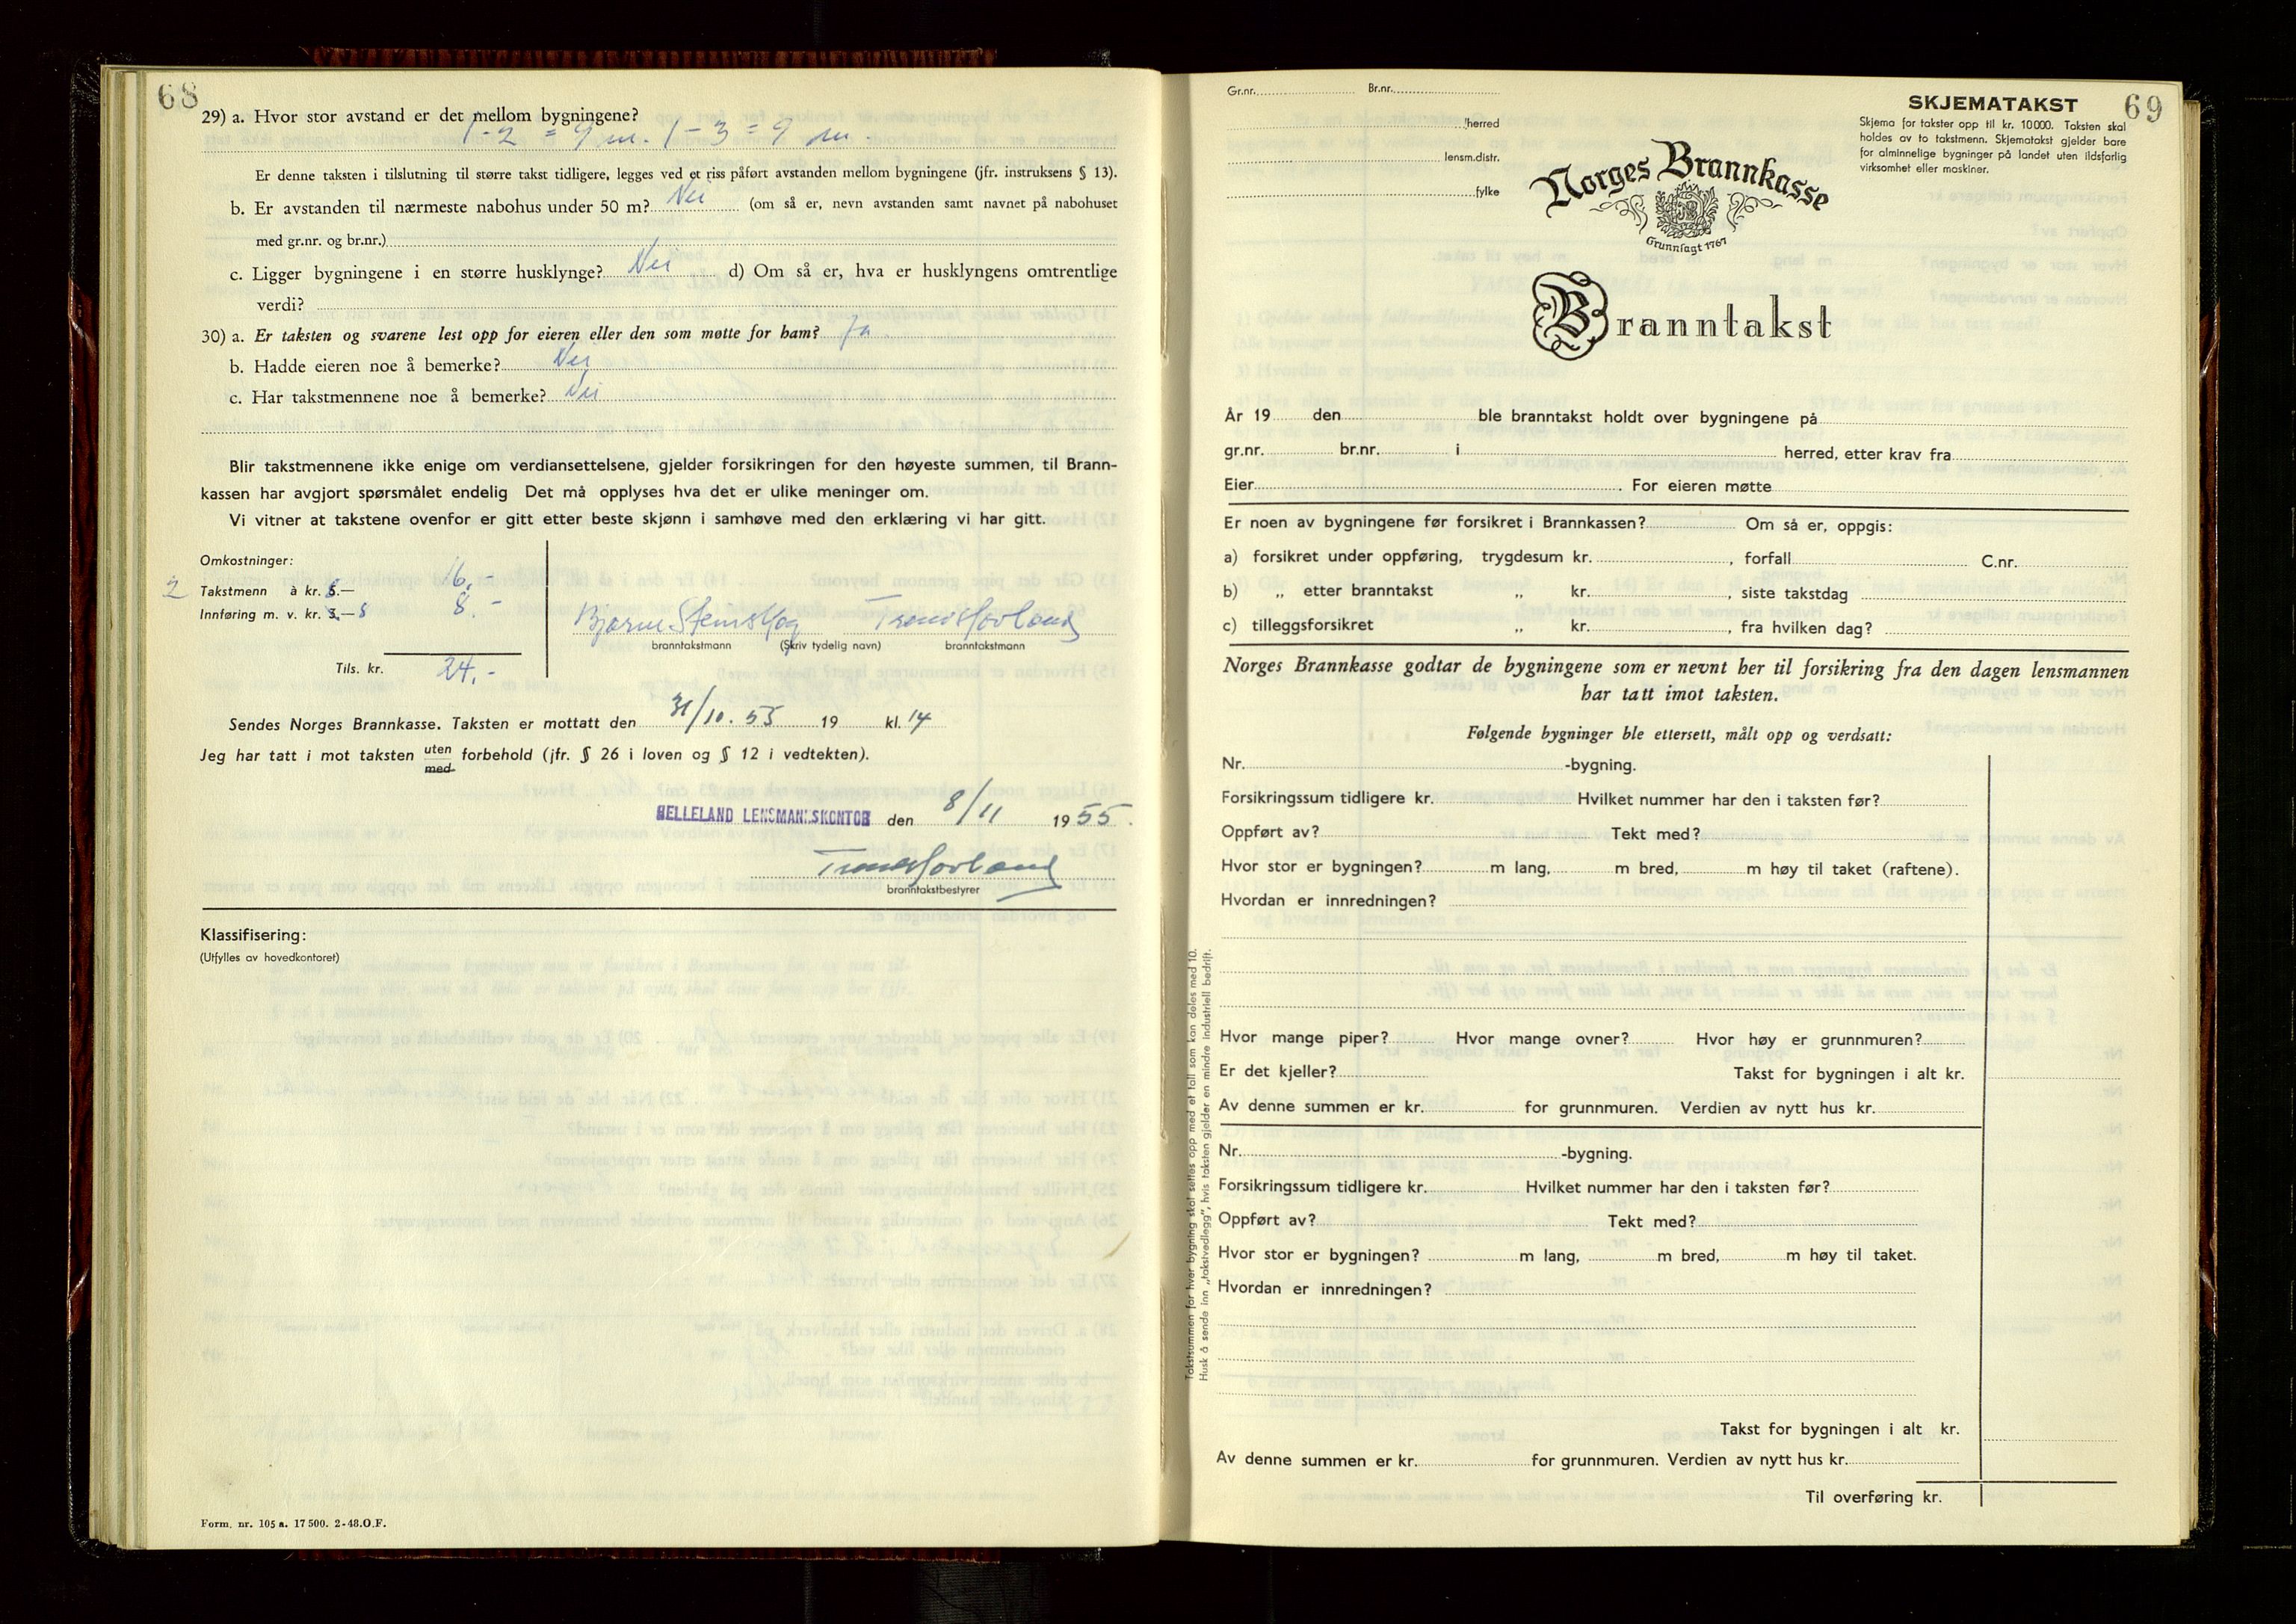 68
29) a. Hvor stor avstand er det mellom bygningene?
1-2 = 9 m. 1-3 = 9 m.
Er denne taksten i tilslutning til større takst tidligere, legges ved et riss påført avstanden mellom bygningene (jfr. instruksens § 13).
b. Er avstanden til nærmeste nabohus under 50 m? Nei (om så er, nevn avstanden samt navnet på nabohuset
med gr.nr. og br.nr.)
c. Ligger bygningene i en større husklynge? Nei d) Om så er, hva er husklyngens omtrentlige
verdi?
30) a. Er taksten og svarene lest opp for eieren eller den som møtte for ham? Ja
b. Hadde eieren noe å bemerke? Nei
c. Har takstmennene noe å bemerke? Nei
Blir takstmennene ikke enige om verdiansettelsene, gjelder forsikringen for den høyeste summen, til Brann-
kassen har avgjort spørsmålet endelig Det må opplyses hva det er ulike meninger om.
Vi vitner at takstene ovenfor er gitt etter beste skjønn i samhøve med den erklæring vi har gitt.
Omkostninger:
2 Takstmenn à kr. 8.— 16.-
Innføring m. v. kr. 3.— 8 8.-
Bjarne Steinskog Trond Hovland
branntakstmann (Skriv tydelig navn) branntakstmann
Tils. kr. 24.-
Sendes Norges Brannkasse. Taksten er mottatt den 31/10. 55 19 kl. 14
Jeg har tatt i mot taksten uten forbehold (jfr. § 26 i loven og § 12 i vedtekten).
med
HELLELAND LENSMANNSKONTOR den 8/11 1955.
Trond Hovland
branntakstbestyrer
Klassifisering:
(Utfylles av hovedkontoret)
Form. nr. 105 a. 17 500. 2-48.O.F.
Gr.nr. Br.nr.
herred
lensm.distr.
fylke
SKJEMATAKST 69
Skjema for takster opp til kr. 10000. Taksten skal
holdes av to takstmenn. Skjematakst gjelder bare
for alminnelige bygninger på landet uten ildsfarlig
virksomhet eller maskiner.
Norges Brannkasse
Grunnlagt 1767
Branntakst
År 19 den ble branntakst holdt over bygningene på
gr.nr. br.nr. i herred, etter krav fra
Eier. For eieren møtte
Er noen av bygningene før forsikret i Brannkassen? Om så er, oppgis:
a) forsikret under oppføring, trygdesum kr. , forfall C.nr.
b) „ etter branntakst „ kr. , siste takstdag
c) tilleggsforsikret „ kr. , fra hvilken dag?
Norges Brannkasse godtar de bygningene som er nevnt her til forsikring fra den dagen lensmannen
har tatt imot taksten.
Følgende bygninger ble ettersett, målt opp og verdsatt:
Nr. -bygning.
Forsikringssum tidligere kr. Hvilket nummer har den i taksten før?
Oppført av? Tekt med?
Hvor stor er bygningen? m lang, m bred, m høy til taket (raftene).
Hvordan er innredningen?
Hvor mange piper? Hvor mange ovner? Hvor høy er grunnmuren?
Er det kjeller? Takst for bygningen i alt kr.
Av denne summen er kr. for grunnmuren. Verdien av nytt hus kr.
Nr. -bygning.
Forsikringssum tidligere kr. Hvilket nummer har den i taksten før?
Oppført av? Tekt med?
Hvor stor er bygningen? m lang, m bred, m høy til taket.
Hvordan er innredningen?
Takst for bygningen i alt kr.
Av denne summen er kr. for grunnmuren. Verdien av nytt hus kr.
Til overføring kr.
Takstsummen for hver bygning skal settes opp med et tall som kan deles med 10.
Husk å sende inn „takstvedlegg", hvis taksten gjelder en mindre industriell bedrift.